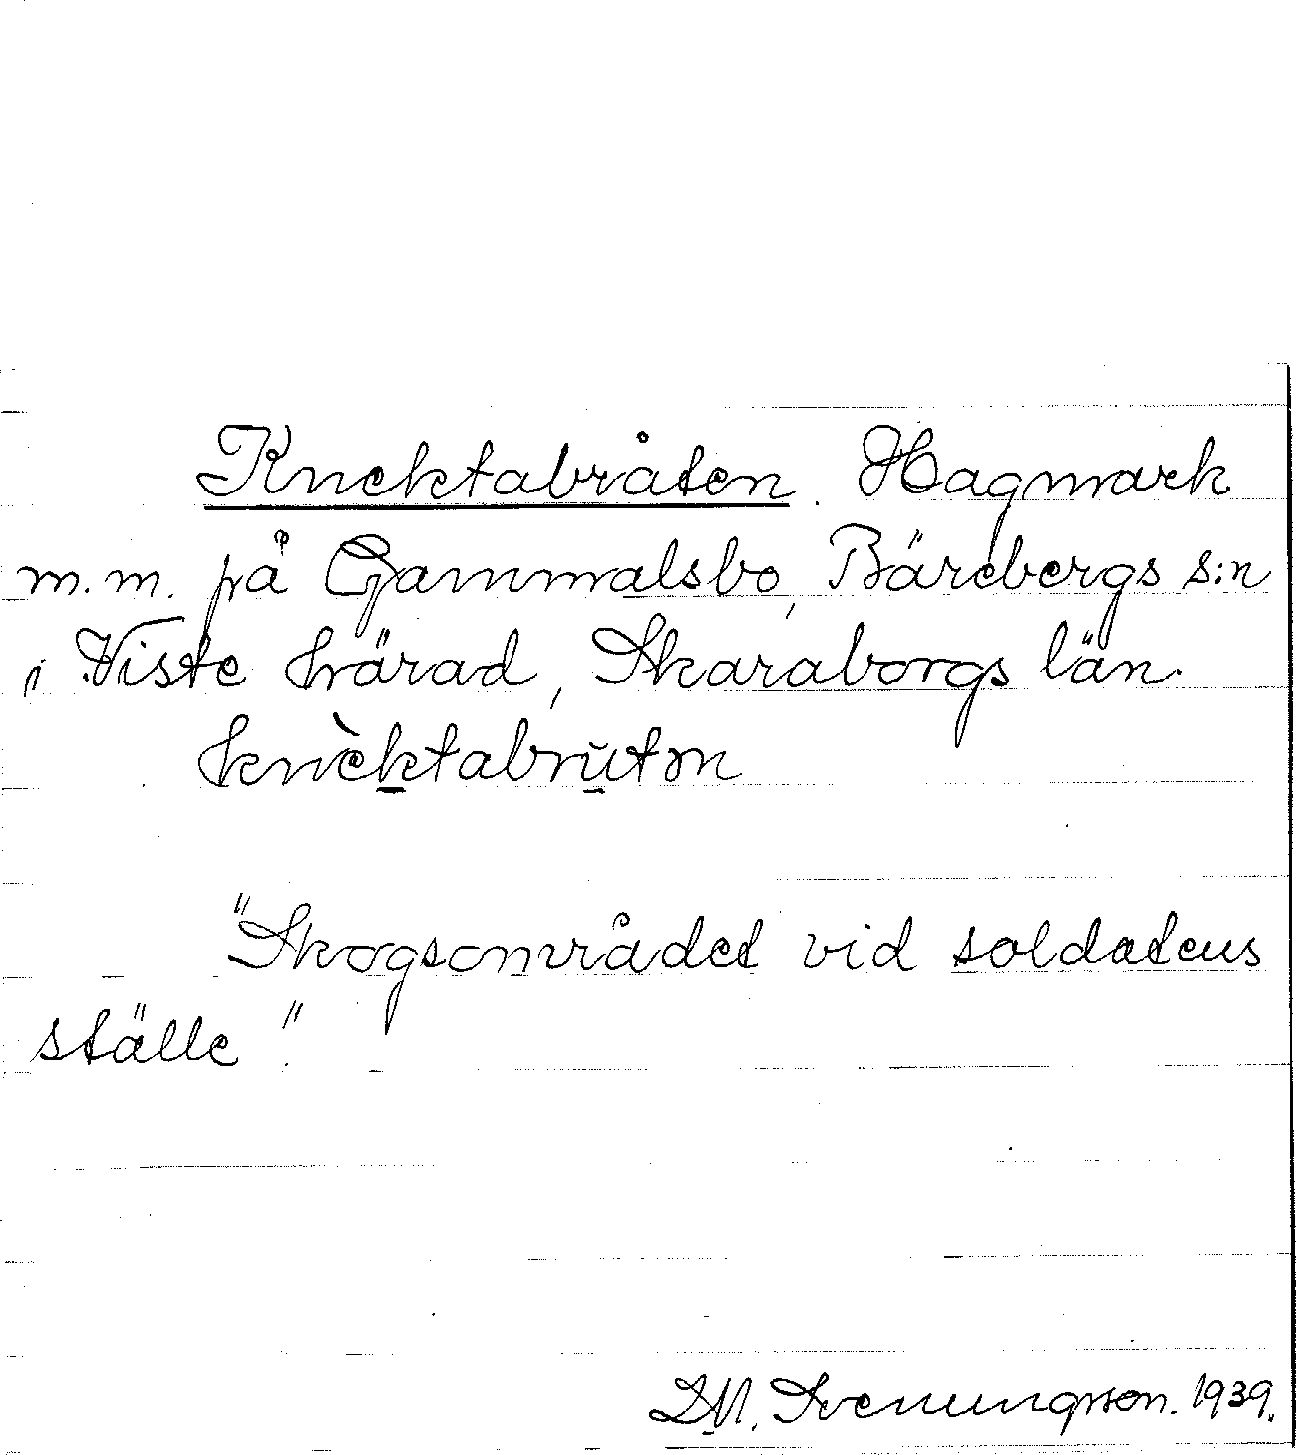 Knektabråten. Hagmark
m.m. på Gammalsbo, Bärebergs s:n
i Viste härad, Skaraborgs län.
knèktabrutm
"Skogsområdet vid soldatens
ställe".
Svenungsson. 1939.